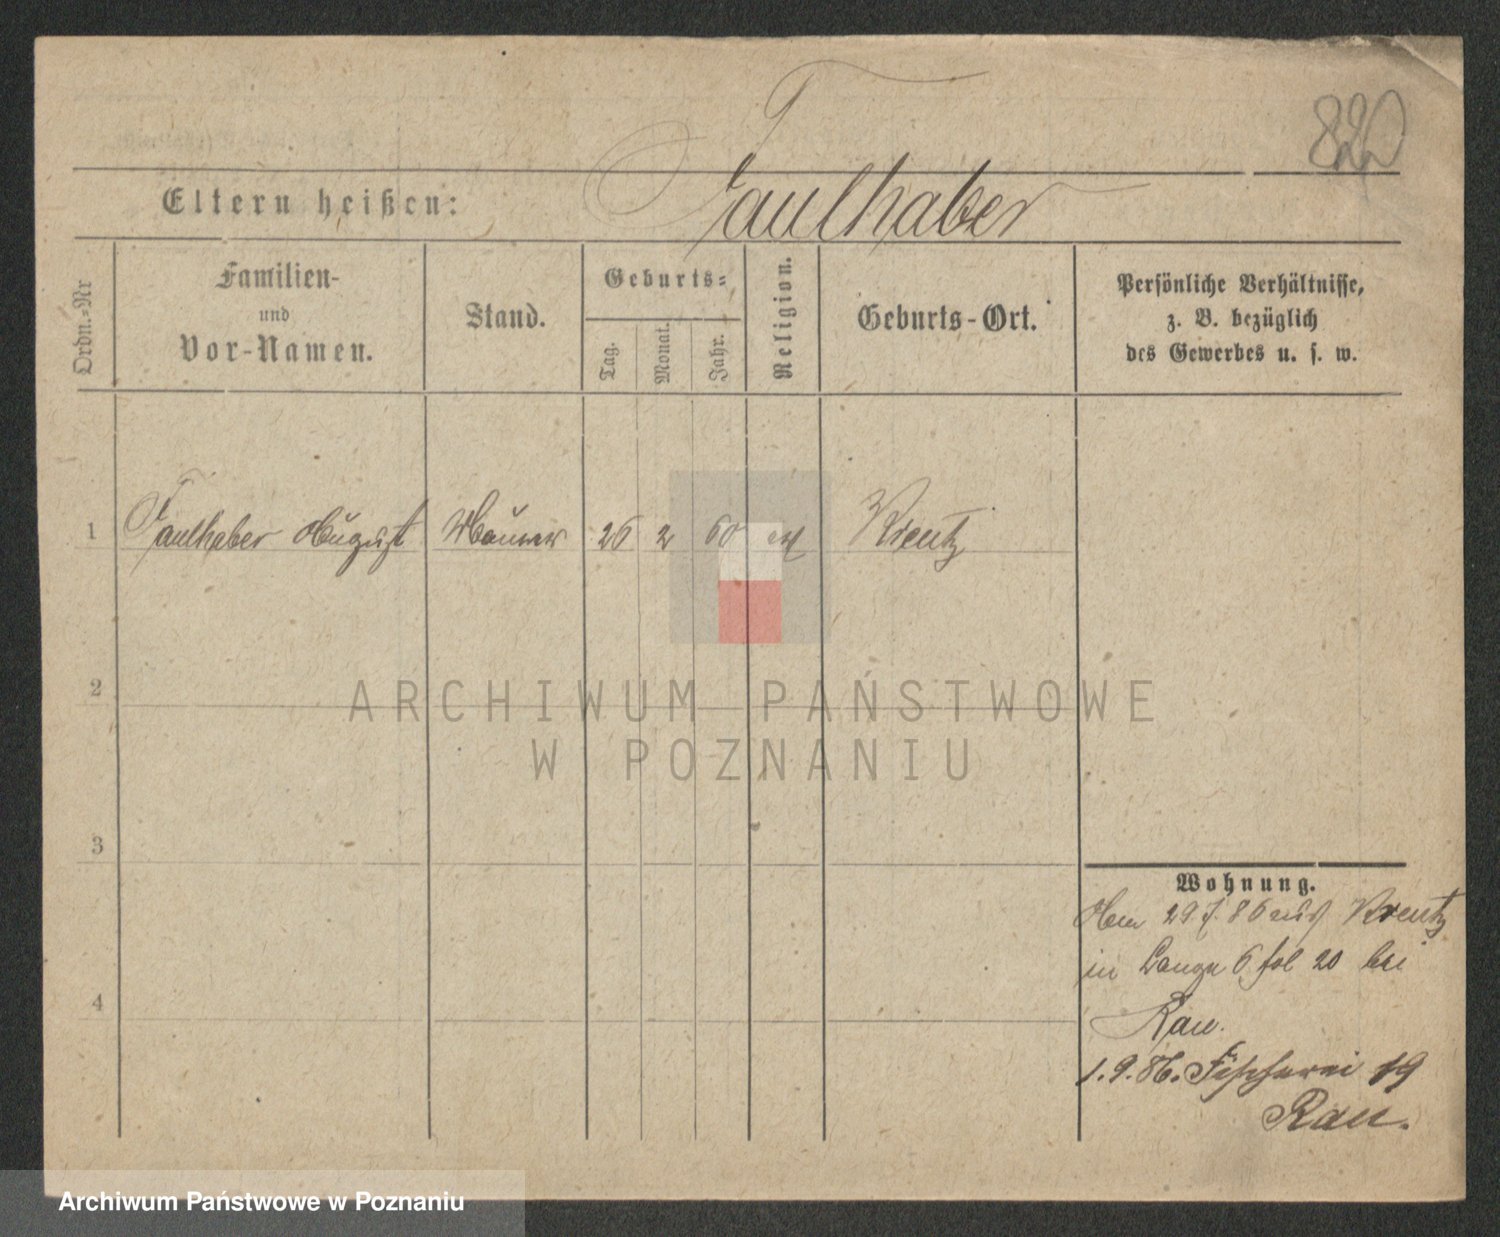 820
Eltern heißen: Faulhaber
Ordn.-Nr
Familien-
und
Vor-Namen.
Stand.
Geburts-
Tag.
Monat.
Jahr.
Religion.
Geburts-Ort.
Persönliche Verhältnisse,
z. B. bezüglich
des Gewerbes u. s. w.
1 Faulhaber August Maurer 26 2 60 Kreutz
2
3
4
ARCHIWUM PAŃSTWOWE
W POZNANIU
Wohnung.
29.7.86 aus Kreutz
in Lange 6 fol 20 bei
Rau.
1.9.86. Fischerei 19
Rau.
Archiwum Państwowe w Poznaniu